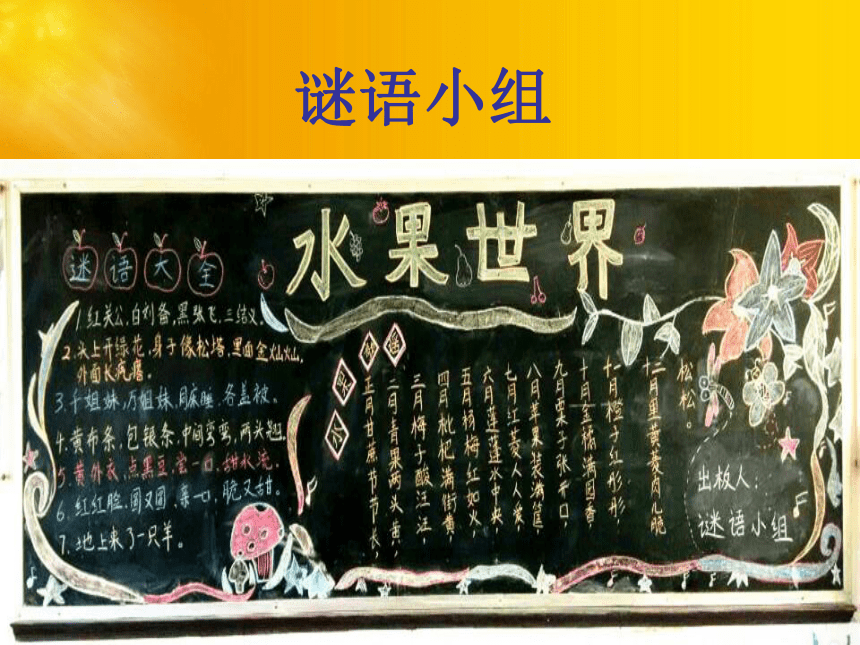 谜语小组
水果世界
迷语大全
1.红关公,白刘备,黑张飞,三结义。
2.头上开绿花,身子像松塔,里面金灿灿,
外面长疙瘩。
3.千姐妹,万姐妹,同床睡,各盖被。
4.黄布条,包银条,中间弯弯,两头翘。
5.黄外衣,点黑豆,尝一口,甜水流。
6.红红脸,圆又圆,亲一口,脆又甜。
7.地上来了一只羊。
正月甘蔗节节长,
二月青果两头黄,
三月梅子酸汪汪,
四月枇杷满街黄,
五月杨梅红如火,
六月莲蓬水中央,
七月红菱人人爱,
八月苹果装满筐,
九月栗子张开口,
十月金橘满园香,
十一月橙子红彤彤,
十二月里黄菱肉儿脆
松松。
出板人:
谜语小组